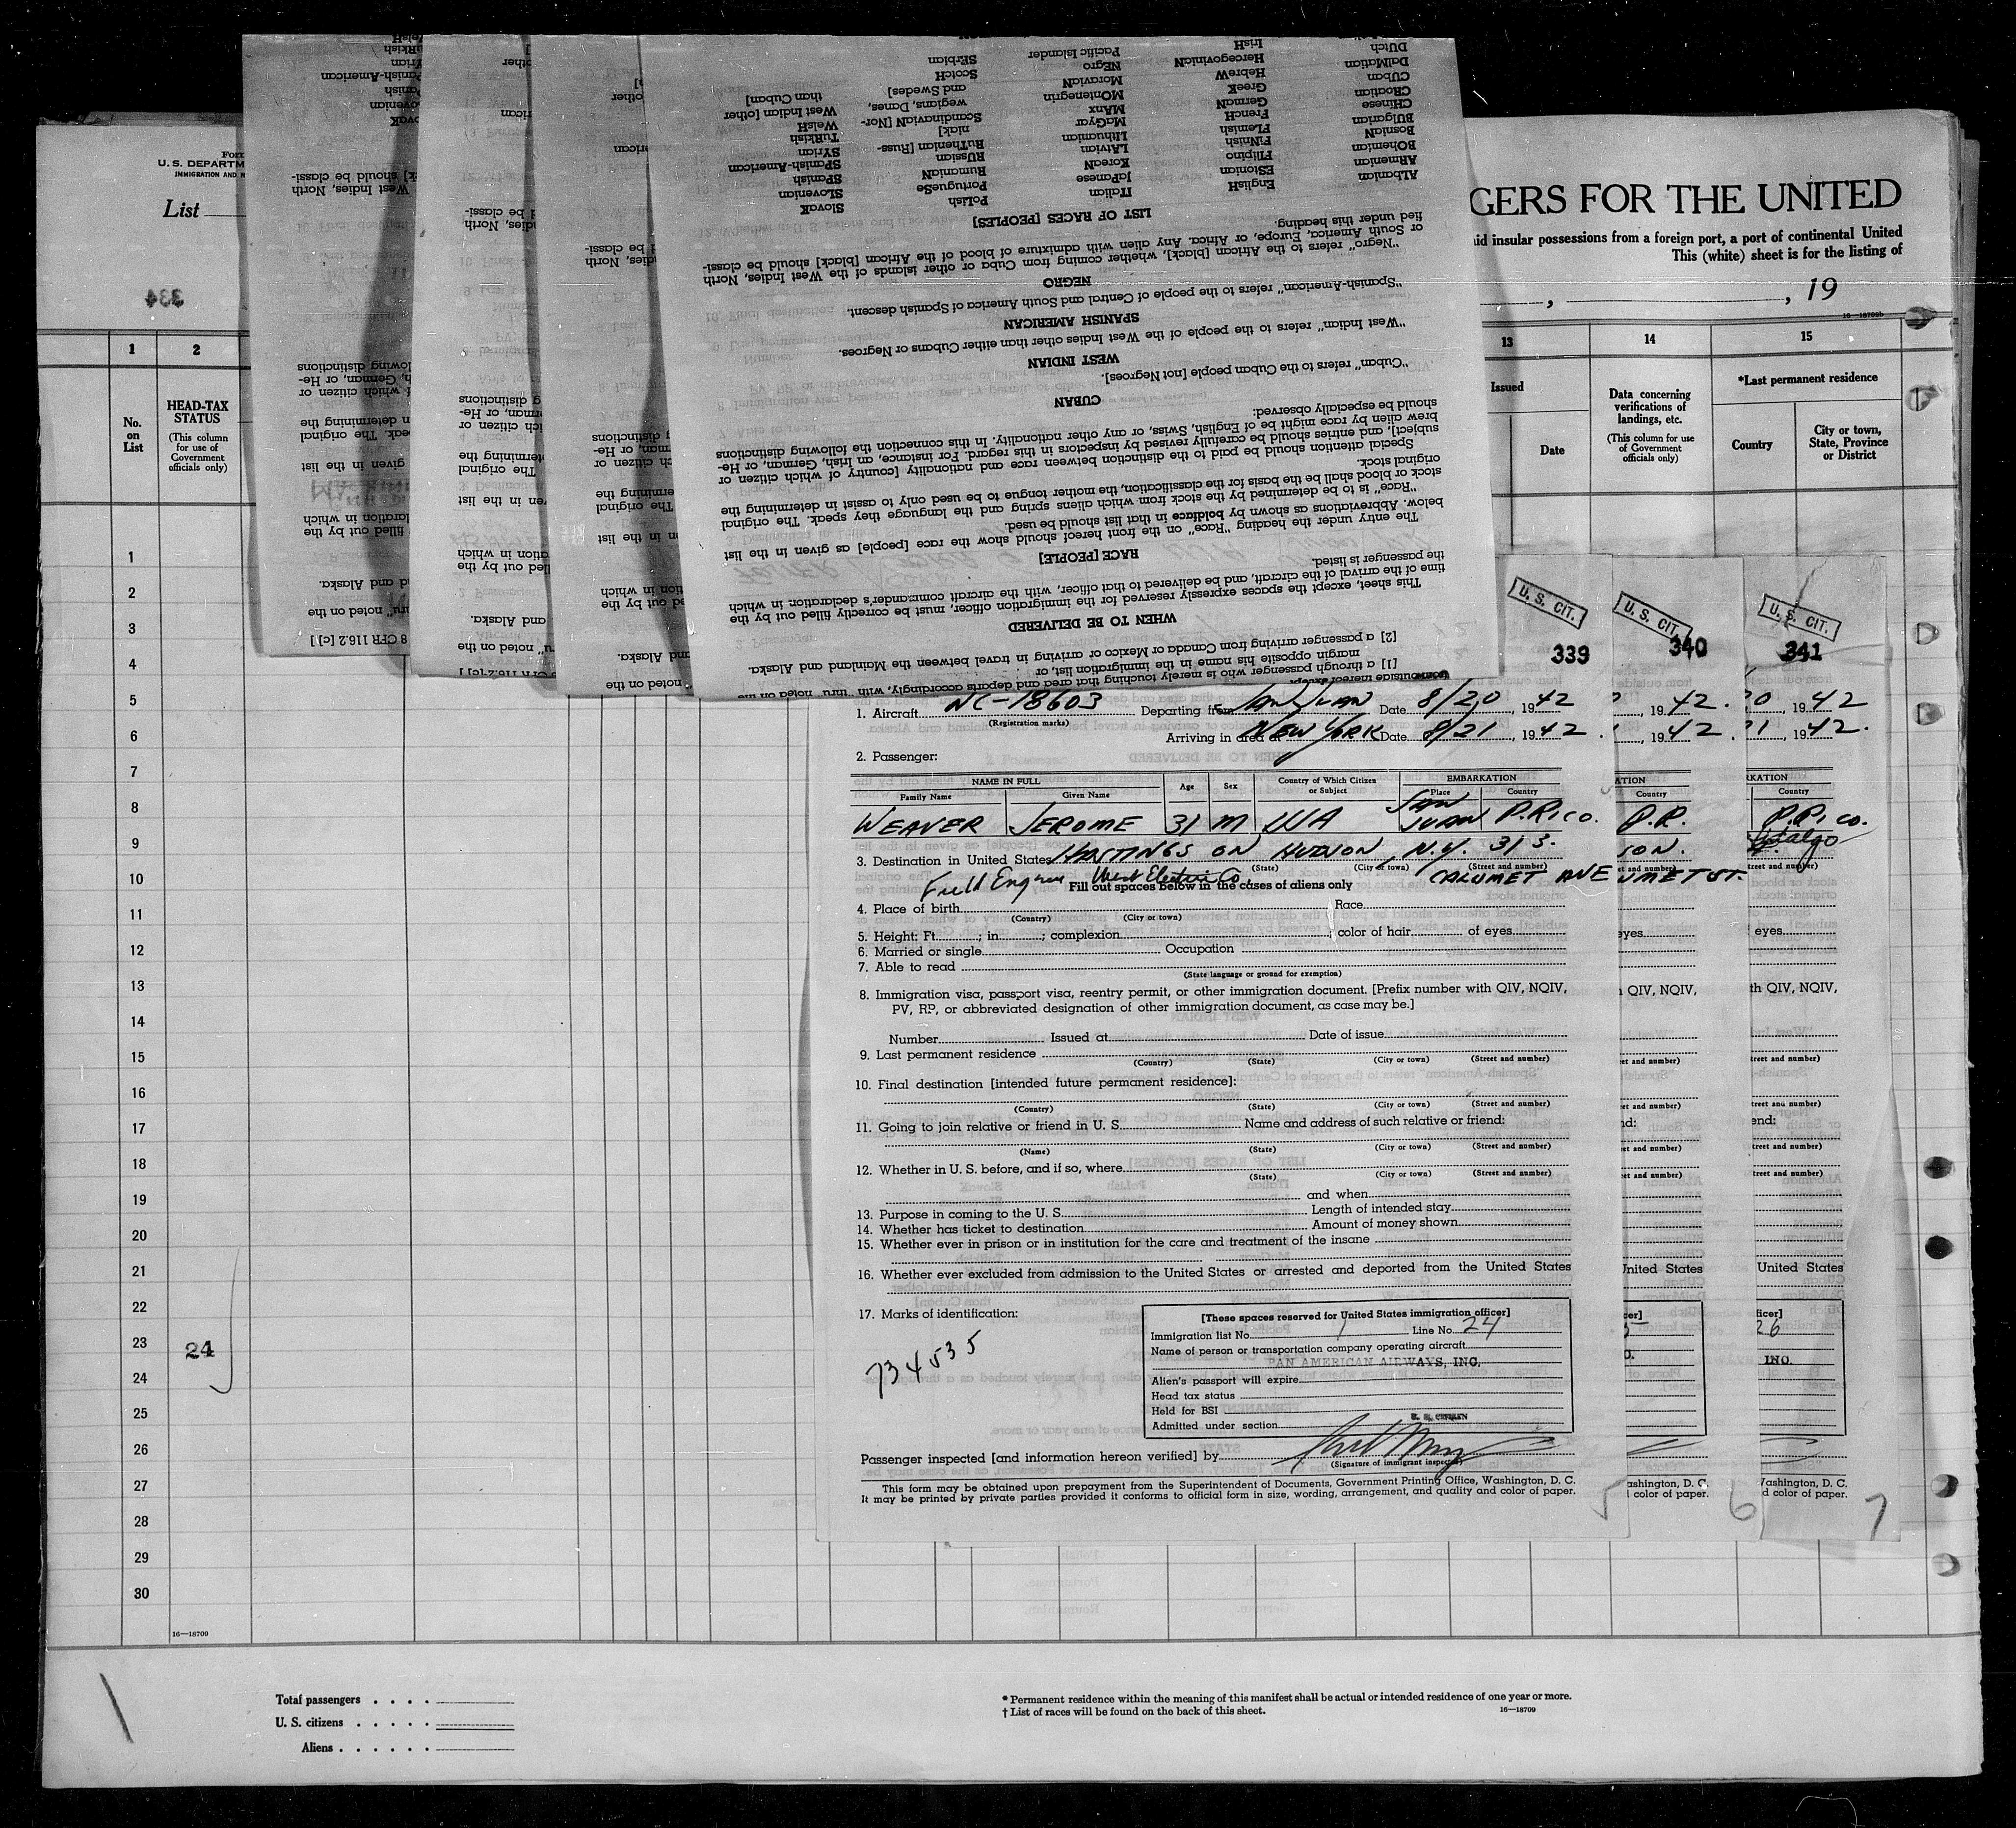 Form
U. S. DEPARTM
IMMIGRATION AND N
List
334
GERS FOR THE UNITED
aid insular possessions from a foreign port, a port of continental United
This (white) sheet is for the listing of
, , 19
16—18709b
1 2 13 14 15
No. on List
HEAD-TAX STATUS
(This column for use of Government officials only)
Issued
Date
Data concerning verifications of landings, etc.
(This column for use of Government officials only)
*Last permanent residence
Country
City or town, State, Province or District
[1] a through passenger who is merely touching that area and departs accordingly, with "thru" noted on the
margin opposite his name in the immigration list, or
[2] a passenger arriving from Canada or Mexico or arriving in travel between the Mainland and Alaska.
WHEN TO BE DELIVERED
This sheet, except the spaces expressly reserved for the immigration officer, must be correctly filled out by the
time of the arrival of the aircraft, and be delivered to that officer, with the aircraft commander's declaration in which
the passenger is listed.
RACE [PEOPLE]
The entry under the heading "Race" on the front hereof should show the race [people] as given in the list
below. Abbreviations as shown by boldface in that list should be used.
"Race" is to be determined by the stock from which aliens spring and the language they speak. The original
stock or blood shall be the basis for the classification, the mother tongue to be used only to assist in determining the
original stock.
Special attention should be paid to the distinction between race and nationality [country of which citizen or
subject], and entries should be carefully revised by inspectors in this regard. For instance, an Irish, German, or He-
brew alien by race might be of English, Swiss, or any other nationality. In this connection the following distinctions
should be especially observed:
CUBAN
"Cuban" refers to the Cuban people [not Negroes].
WEST INDIAN
"West Indian" refers to the people of the West Indies other than either Cubans or Negroes.
SPANISH AMERICAN
"Spanish-American" refers to the people of Central and South America of Spanish descent.
NEGRO
"Negro" refers to the African [black], whether coming from Cuba or other islands of the West Indies, North
or South America, Europe, or Africa. Any alien with admixture of blood of the African [black] should be classi-
fied under this heading.
LIST OF RACES [PEOPLES]
ALbanian
ARmenian
BOhemian
BosniaN
BUlgarian
CHinese
CRoatian
CUban
DalMatian
DUtch
EnglisH
EStonian
FIlipino
FiNnish
FLemish
FrencH
GermaN
GreeK
HebreW
HercegoviniaN
IrisH
ITalian
JaPanese
KoreaN
LAtvian
LIthuanian
MaGyar
MAnx
MOntenegrin
MoraviaN
NEgro
Pacific Islander
PoLish
PortugueSe
RumaniaN
RUssian
RuThenian [Russ-
niak]
ScandinaviaN [Nor-
wegians, Danes,
and Swedes]
ScotcH
SErbian
SlovaK
SLOvenian
SPanish
SPanish-American
SYrian
TuRkish
WelsH
West Indian [other
than Cuban]
U. S. CIT.
339
U. S. CIT.
340
U. S. CIT.
341
1. Aircraft NC-18603 Departing from San Juan Date 8/20, 1942
(Registration marks)
Arriving in area of New York Date 8/21, 1942.
2. Passenger:
NAME IN FULL Age Sex Country of Which Citizen or Subject EMBARKATION
Family Name Given Name Place Country
WEAVER JEROME 31 M USA SAN JUAN P.RICO.
3. Destination in United States HASTINGS ON HUDSON, N.Y. 313.
(State) (City or town) (Street and number)
CALUMET AVE
Field Engineer West Electric Co
Fill out spaces below in the cases of aliens only
4. Place of birth Race
(Country) (City or town)
5. Height: Ft. ; in. ; complexion ; color of hair of eyes
6. Married or single Occupation
7. Able to read
(State language or ground for exemption)
8. Immigration visa, passport visa, reentry permit, or other immigration document. [Prefix number with QIV, NQIV,
PV, RP, or abbreviated designation of other immigration document, as case may be.]
Number Issued at Date of issue
9. Last permanent residence
(Country) (State) (City or town) (Street and number)
10. Final destination [intended future permanent residence]:
(Country) (State) (City or town) (Street and number)
11. Going to join relative or friend in U. S. Name and address of such relative or friend:
(Name) (State) (City or town) (Street and number)
12. Whether in U. S. before, and if so, where
(State) (City or town) (Street and number)
and when
13. Purpose in coming to the U. S. Length of intended stay
14. Whether has ticket to destination Amount of money shown
15. Whether ever in prison or in institution for the care and treatment of the insane
16. Whether ever excluded from admission to the United States or arrested and deported from the United States
17. Marks of identification:
734535
[These spaces reserved for United States immigration officer]
Immigration list No. 1 Line No. 24
Name of person or transportation company operating aircraft
PAN AMERICAN AIRWAYS, INC.
Alien's passport will expire
Head tax status
Held for BSI
U. S. CITIZEN
Admitted under section
Passenger inspected [and information hereon verified] by
(Signature of immigrant inspector)
This form may be obtained upon prepayment from the Superintendent of Documents, Government Printing Office, Washington, D. C.
It may be printed by private parties provided it conforms to official form in size, wording, arrangement, and quality and color of paper.
5
6
7
1
2
3
4
5
6
7
8
9
10
11
12
13
14
15
16
17
18
19
20
21
22
23
24
24
25
26
27
28
29
30
16—18709
Total passengers
U. S. citizens
Aliens
* Permanent residence within the meaning of this manifest shall be actual or intended residence of one year or more.
† List of races will be found on the back of this sheet. 16—18709